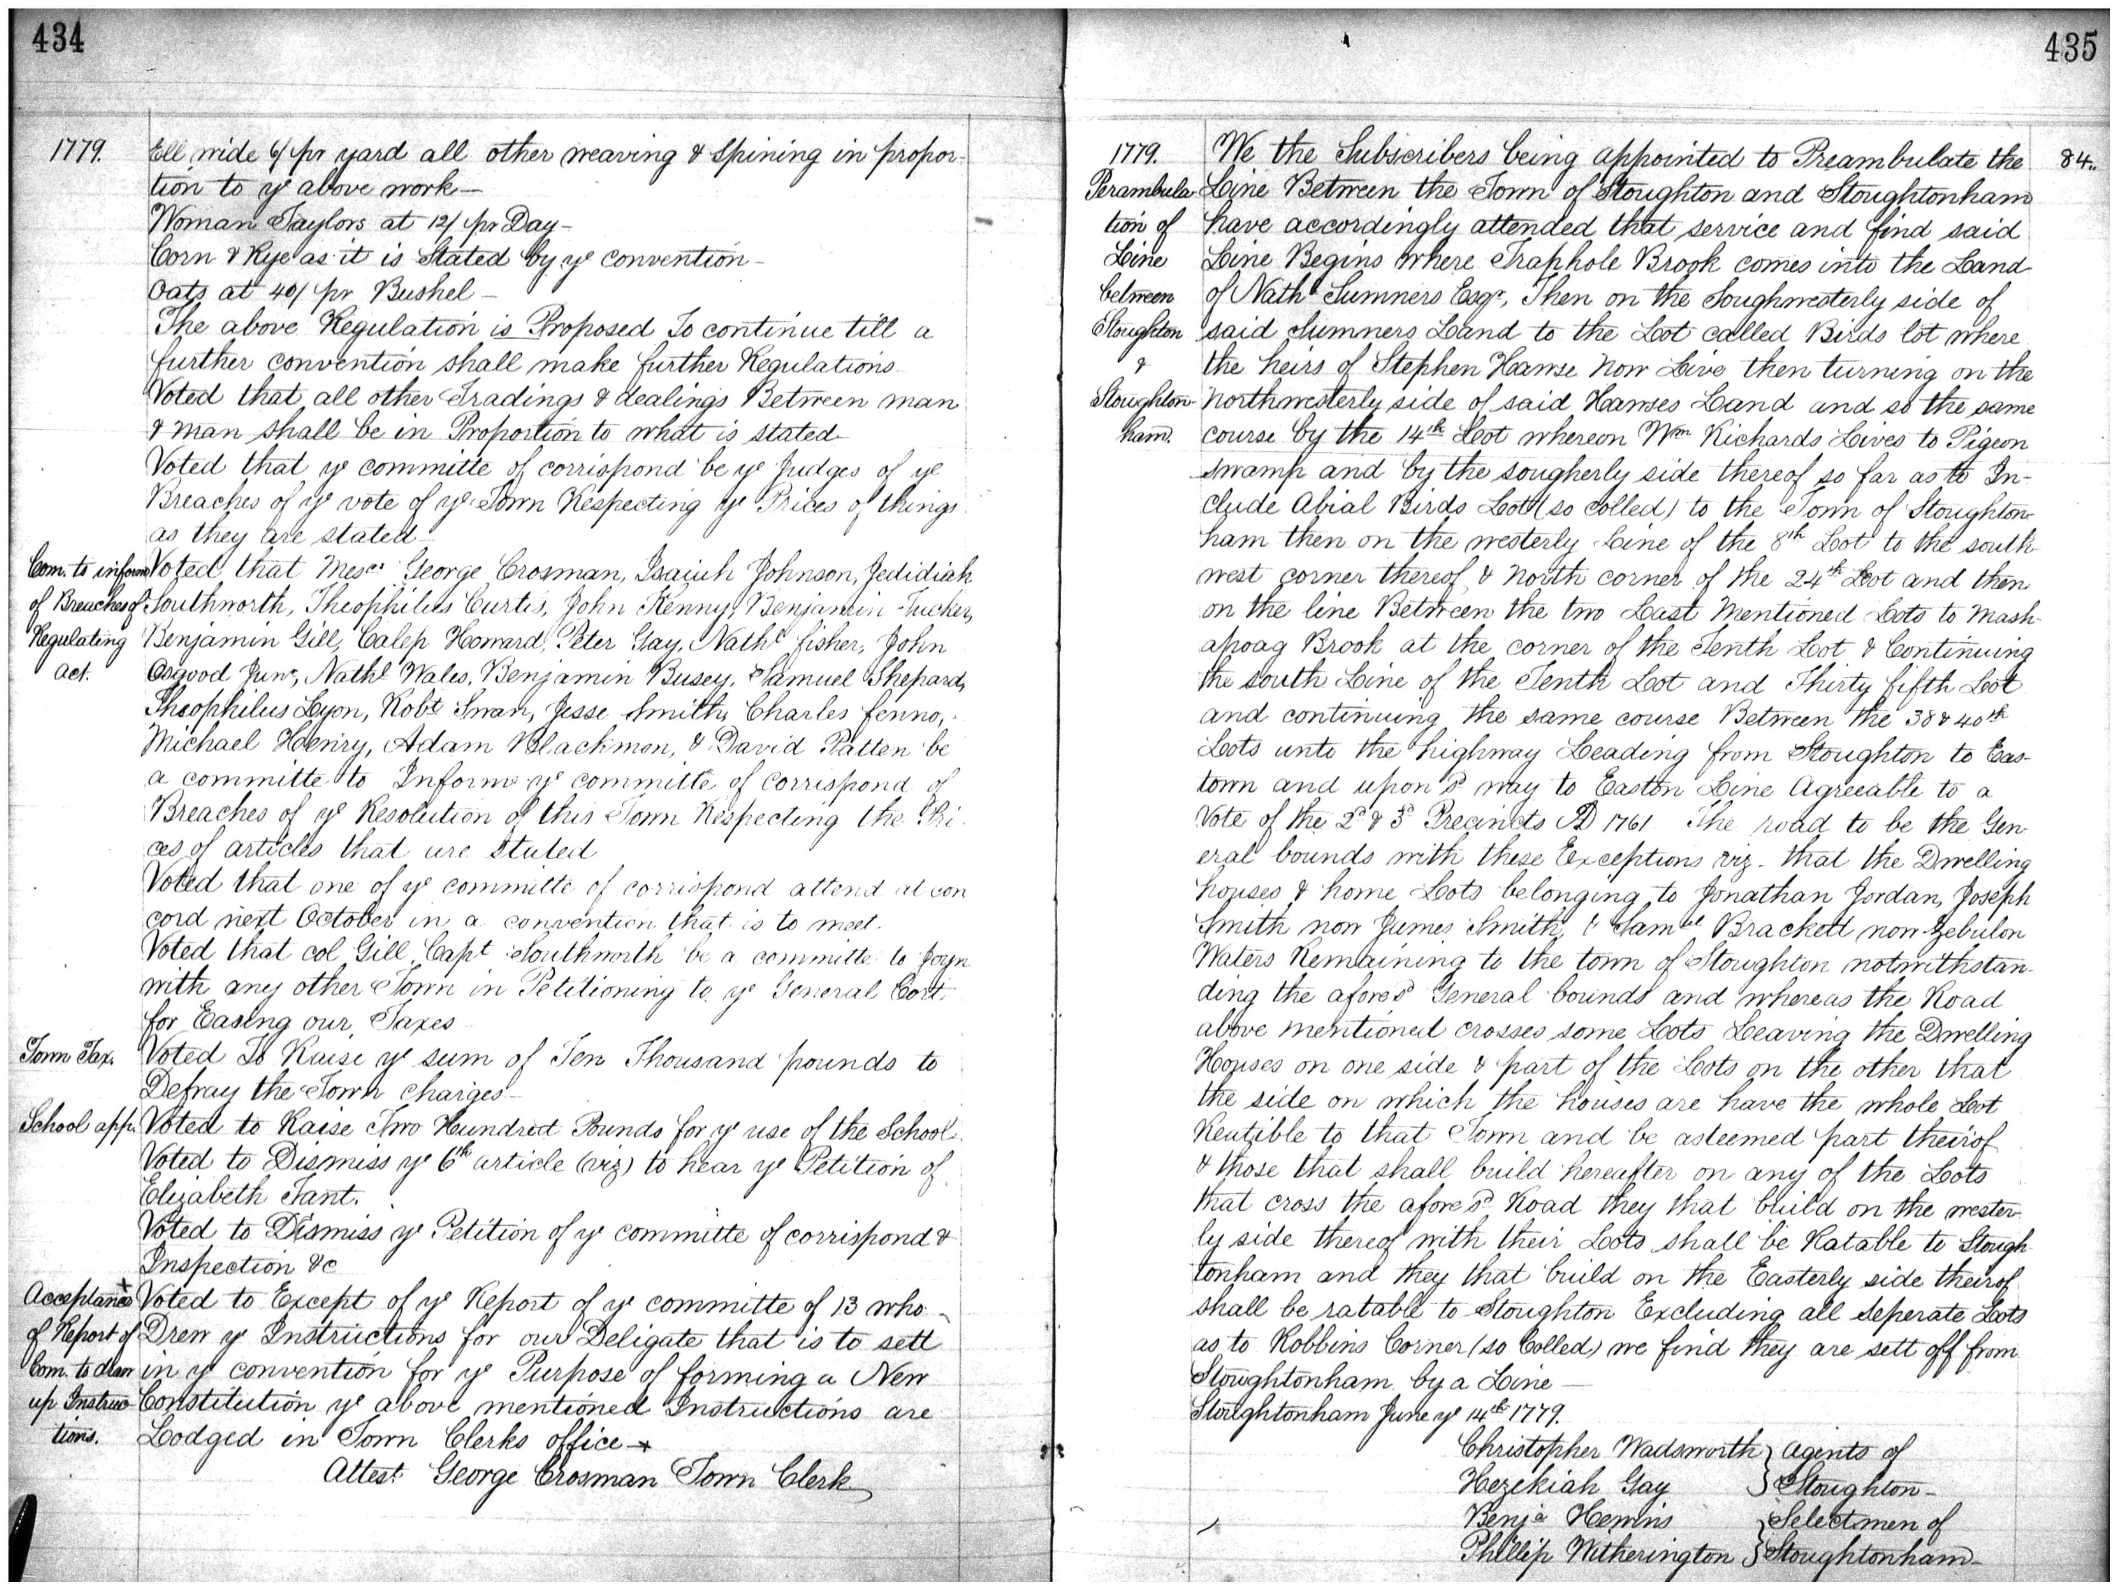 434
1779.
Ell wide 6/ pr yard all other weaving & Spining in propor-
tion to ye above work—
Woman Taylors at 12/ pr Day—
Corn & Rye as it is Stated by ye convention—
Oats at 40/ pr Bushel—
The above Regulation is Proposed To continue till a
further convention shall make further Regulations
Voted that all other Tradings & dealings Between man
& man shall be in Proportion to what is stated—
Voted that ye committe of corrispond be ye Judges of ye
Breaches of ye vote of ye Town Respecting ye Prices of things
as they are stated—
Com. to inform
of Breaches of
Regulating
act.
Voted that Mesrs George Crosman, Isaiah Johnson, Jedidiah
Southworth, Theophilus Curtis, John Kenny, Benjamin Tucker,
Benjamin Gill, Calep Howard, Peter Gay, Nathl fisher, John
Osgood Junr, Nathl Wales, Benjamin Busey, Samuel Shepard,
Theophilus Lyon, Robt Swan, Jesse Smith, Charles fenno,
Michael Henry, Adam Blackmon, & David Patten be
a committe to Inform ye committe of corrispond of
Breaches of ye Resolution of this Town Respecting the Pri-
ces of articles that are Stated
Voted that one of ye committe of corrispond attend at con
cord next October in a convention that is to meet.
Voted that col Gill, Capt Southworth be a committe to Joyn
with any other Town in Petitioning to ye General Cort
for Easing our Taxes
Town Tax.
Voted To Raise ye sum of Ten Thousand pounds to
Defray the Town charges—
School app.
Voted to Raise Two Hundred Pounds for ye use of the School.
Voted to Dismiss ye 6th article (viz) to hear ye Petition of
Elizabeth Tant.
Voted to Dismiss ye Petition of ye committe of corrispond &
Inspection &c
Acceptance
of Report of
Com. to draw
up Instruc-
tions.
+ Voted to Except of ye Report of ye committe of 13 who
Drew ye Instructions for our Deligate that is to sett
in ye convention for ye Purpose of forming a New
Constitution ye above mentioned Instructions are
Lodged in Town Clerks office—+
Attest. George Crosman Town Clerk
435
84..
1779.
Perambula
tion of
Line
between
Stoughton
&
Stoughton-
ham.
We the Subscribers being appointed to Preambulate the
Line Between the Town of Stoughton and Stoughtonham
have accordingly attended that service and find said
Line Begins where Traphole Brook comes into the Land
of Nathl Sumners Esqr, Then on the Soughwesterly side of
said Sumners Land to the Lot called Birds lot where
the heirs of Stephen Hawse now Live then turning on the
Northwesterly side of said Hawses Land and so the same
course by the 14th Lot whereon Wm Richards Lives to Pigeon
swamp and by the sougherly side thereof so far as to In-
clude Abial Birds Lot (so colled) to the Town of Stoughton-
ham then on the westerly Line of the 8th Lot to the south
west corner thereof & North corner of the 24th Lot and then
on the line Between the two Last Mentioned Lots to Mash-
apoag Brook at the corner of the Tenth Lot & Continuing
the south Line of the Tenth Lot and Thirty fifth Lot
and continuing the same course Between the 38 & 40th
Lots unto the highway Leading from Stoughton to Eas-
town and upon sd way to Easton Line Agreeable to a
Vote of the 2d & 3d Precincts AD 1761 The road to be the Gen-
eral bounds with these Exceptions viz- that the Dwelling
houses & home Lots belonging to Jonathan Jordan, Joseph
Smith now James Smith, & Samuel Brackett now Zebulon
Waters Remaining to the town of Stoughton notwithstan-
ding the aforesd General bounds and whereas the Road
above mentioned crosses some Lots Leaving the Dwelling
Houses on one side & part of the Lots on the other that
the side on which the houses are have the whole Lot
Reatible to that Town and be asteemed part theirof
& those that shall build hereafter on any of the Lots
that cross the aforesd Road they that build on the wester-
ly side thereof with their Lots shall be Ratable to Stough
tonham and they that build on the Easterly side theirof
shall be ratable to Stoughton Excluding all seperate Lots
as to Robbins Corner (so Colled) we find they are sett off from
Stoughtonham by a Line—
Stoughtonham June ye 14th 1779.
Christopher Wadsworth } Agents of
Hezekiah Gay } Stoughton—
Benja Hewins } Selectmen of
Phillip Witherington } Stoughtonham—